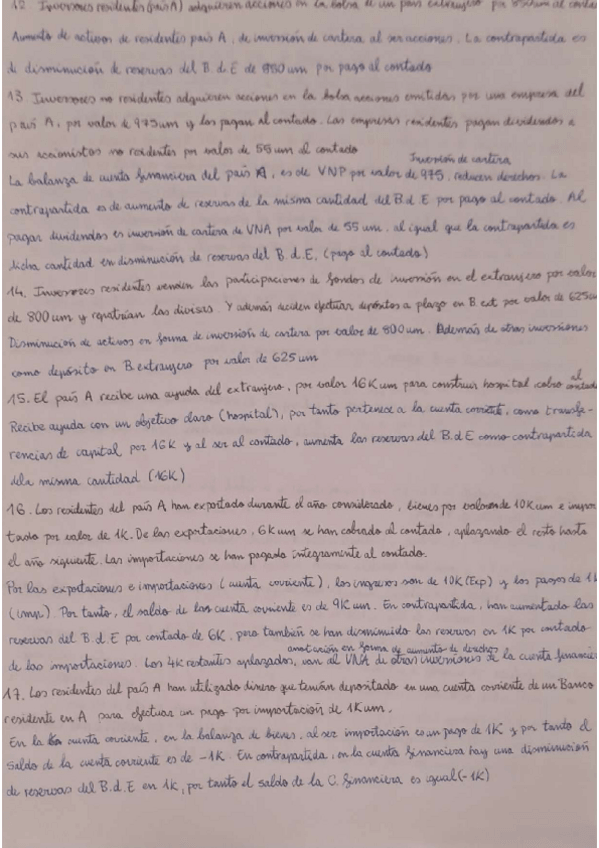 12 Inversores residentes (país A) adquieren acciones en la bolsa de un país extranjero por al contado
Aumento de activos de residentes país A, de inversión de cartera al ser acciones. La contrapartida es
de disminución de reservas del B. d E de 850 um por pago al contado
13 Inversores no residentes adquieren acciones en la bolsa acciones emitidas por una empresa del
país A, por valor de 975um y los pagan al contado. Las empresas residentes pagan dividendos a
sus accionistas no residentes por valor de 55 um al contado
Inversión de cartera
La balanza de cuenta financiera del país A, es de VNP por valor de 975. reducen derechos. La
contrapartida es de aumento de reservas de la misma cantidad del B d E por pago al contado. Al
pagar dividendos es inversión de cartera de VNA por valor de 55 um. al igual que la contrapartida es
dicha cantidad en disminución de reservas del B. d. E. (pago al contado)
14. Inversores residentes venden las participaciones de fondos de inversión en el extranjero por valor
de 800 um y repatrian las divisas. Y además deciden efectuar depósitos a plazo en B ext por valor de 625um
Disminución de activos en forma de inversión de cartera por valor de 800 um. Además de otras inversiones
como depósito en B. extranjero por valor de 625 um
15. El país A recibe una ayuda del extranjero, por valor 16K um para construir hospital, cobro al contado
Recibe ayuda con un objetivo claro (hospital), por tanto pertenece a la cuenta corriente, como transfe-
rencias de capital por 16K y al ser al contado, aumenta las reservas del B.d E como contrapartida
dela misma cantidad (16K)
16. Los residentes del país A han exportado durante el año considerado, bienes por valor de 10K um e impor
tado por valor de 1K. De las exportaciones, 6K um se han cobrado al contado, aplazando el resto hasta
el año siguiente. Las importaciones se han pagado íntegramente al contado.
Por las exportaciones e importaciones (cuenta corriente), los ingresos son de 10K (Exp) y los pagos de 1K
(imp). Por tanto, el saldo de la cuenta corriente es de 9K um. En contrapartida, han aumentado las
reservas del B. d E por contado de 6K. pero también se han disminuido las reservas en 1K por contado
anotación en forma de aumento de derechos
de las importaciones. Los 4K restantes aplazados, van al VNA de otras inversiones de la cuenta financiera
17. Los residentes del país A han utilizado dinero que tenían depositado en una cuenta corriente de un Banco
residente en A para efectuar un pago por importación de 1K um.
En la cuenta corriente, en la balanza de bienes, al ser importación es un pago de 1K y por tanto el
saldo de la cuenta corriente es de -1K. En contrapartida, en la cuenta financiera hay una disminución
de reservas del B.d.E en 1K, por tanto el saldo de la C. financiera es igual (-1K)